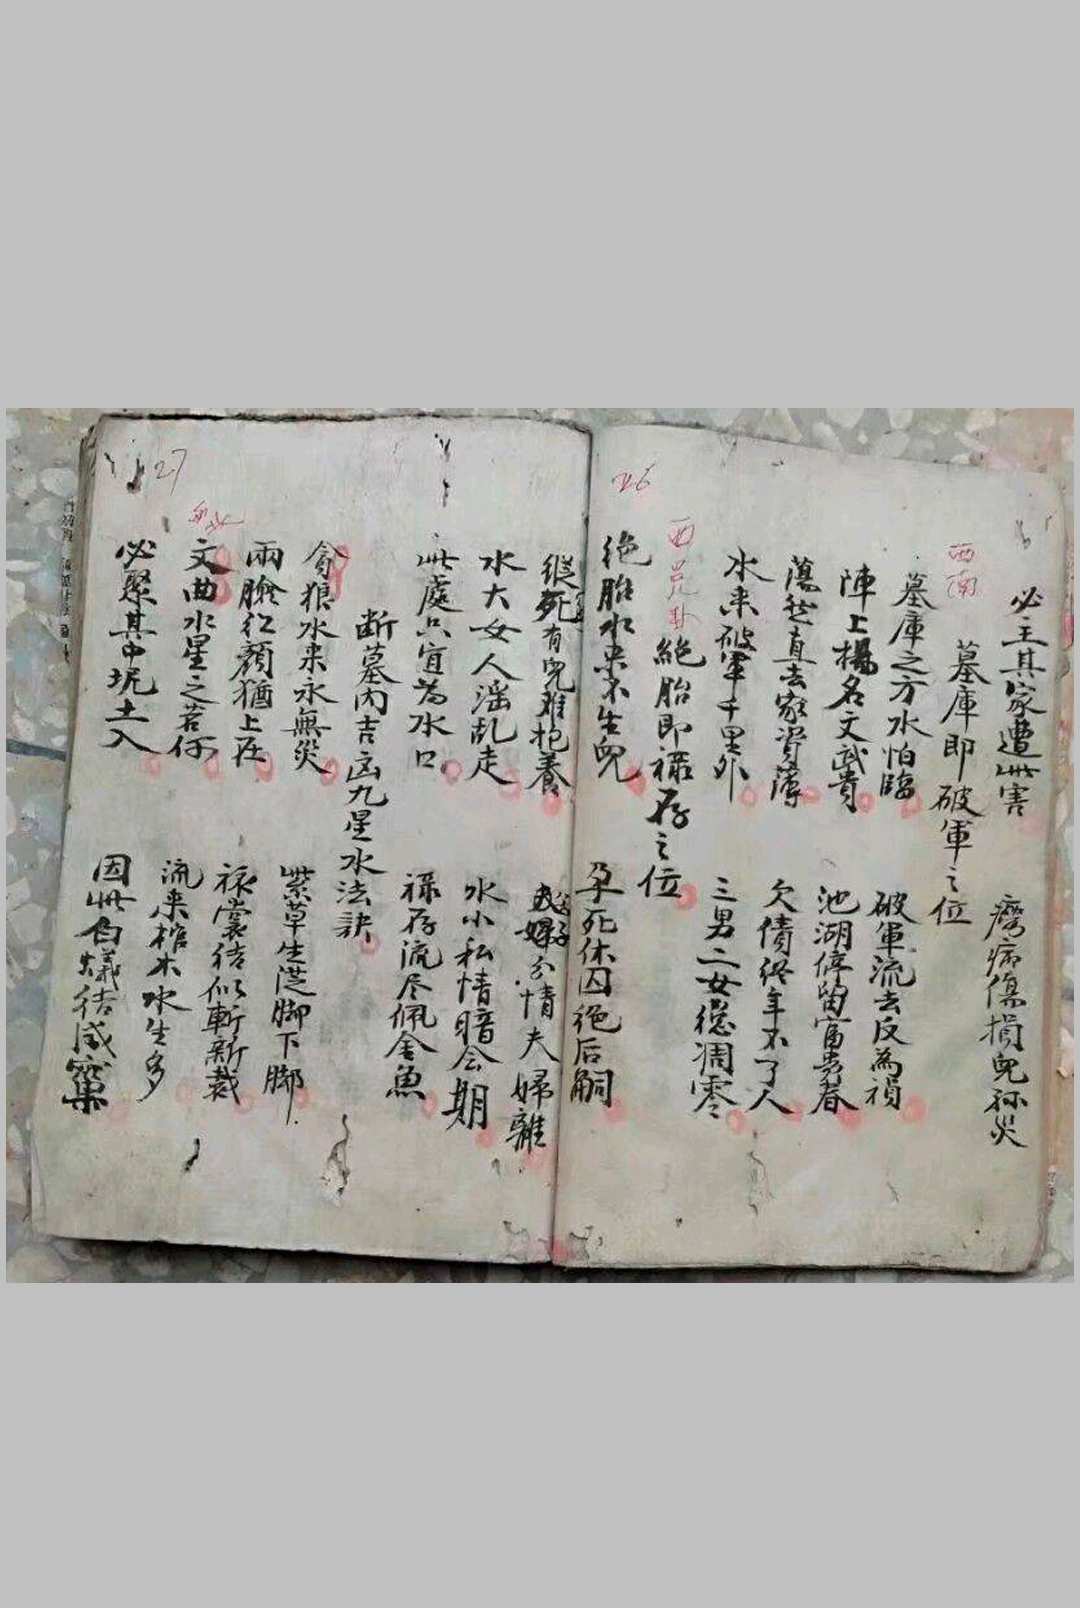 26
必主其家遭此害 癆病傷損免祢災
西南
墓庫即破軍之位
墓庫之方水怕臨 破軍流去反為禍
陣上揚名文武貴 池湖停留富貴春
蕩然直去家資薄 欠債終年不了人
水来破軍千里外 三男二女總凋零
西兑卦
絶胎即禄存之位
绝胎水来不生兜 孕死休囚绝后嗣
27
縱死有兜难抱養 分情夫婦離
水大女人滛乱走 水小私情暗会期
此處只宜為水口 禄存流尽佩金魚
断墓内吉凶九星水法訣
貪狼水来永無災 紫草生涯脚下脚
兩臉红顏猶上在 衤裳结似斬新裁
文曲水星之若何 流来棺木水生多
必聚其中坭土入 因此白蟻结成窠